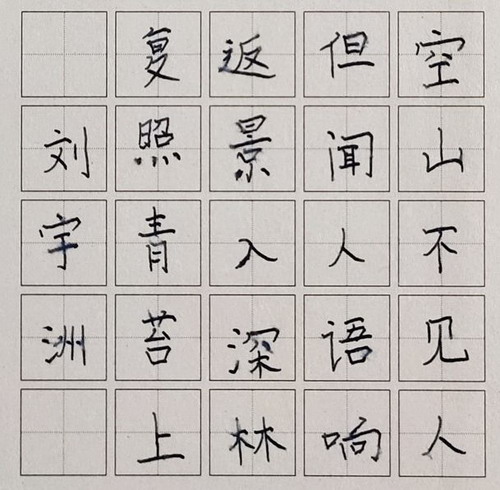 空山不见人
但闻人语响
返景入深林
复照青苔上
刘宇洲